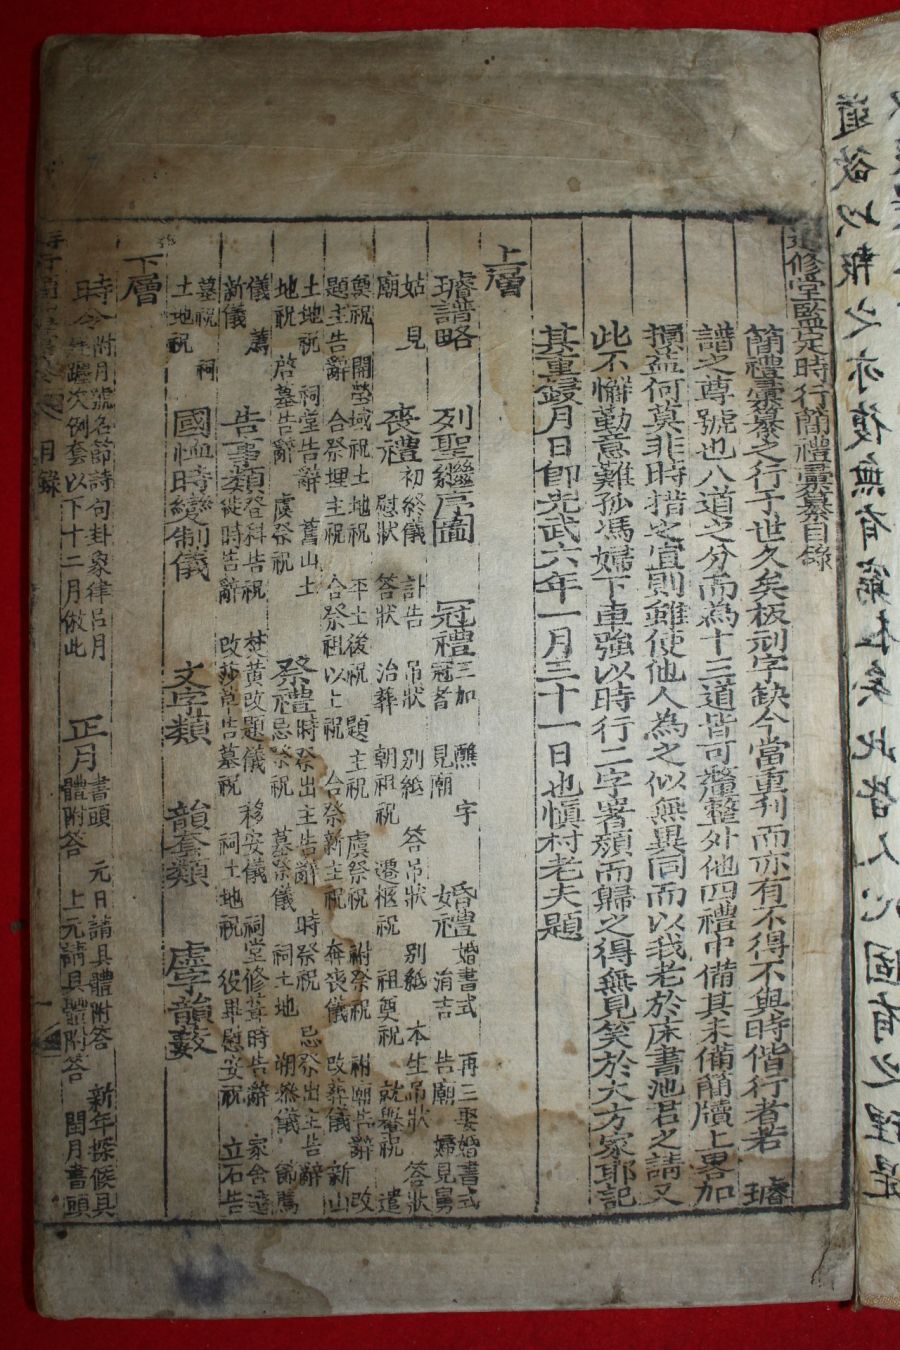 道欲以報之亦復無有窮
此皆人心固有之理
進修堂監定時行簡禮彙纂目錄
簡禮彙纂之行于世久矣板刓字缺今當重刊而亦有不得不與時偕行者若 璿
譜之尊號也八道之分而爲十三道皆可釐整外他四禮中備其未備簡牘上畧加
損益何莫非時措之宜則雖使他人為之似無異同而以我老於床書池君之請又
此不懈勤意難孤馮婦下車強以時行二字署頭而歸之得無見笑於大方家耶記
其重鋟月日卽光武六年一月三十一日也愼村老夫題
上層
璿譜略 列聖繼序圖 冠禮 三加 醮 字 冠者 見廟 婚禮 婚書式 再三娶婚書式 涓吉 告廟 婦見舅
姑 見廟 喪禮 初終儀 訃告 吊狀 別紙 答吊狀 別紙 本生吊狀 答狀 慰狀 答狀 治葬 朝祖祝 遷柩祝 祖奠祝 就轝祝 遣
奠祝 開塋域祝 土地祝 平土後祝 題主祝 虞祭祝 祔祭祝 祔廟告辭 改
題主告辭 合祭埋主祝 合祭祖以上祝 合祭新主祝 奔喪儀 改葬儀 新山
土地祝 祠堂告辭 舊山土地祝 啓墓告辭 虞祭祝 祭禮 時祭出主告辭 時祭祝 忌祭出主告辭 忌祭祝 墓祭儀 祠土地 朔參儀 節薦
儀 薦新儀 告事類 登科告祝 焚黃改題儀 移安儀 祠堂修葺時告辭 家舍遠徙時告辭 改莎草告墓祝 祠土地祝 役畢慰安祝 立石告
墓祝 祠土地祝 國恤時變制儀 文字類 韻套類 虛字韻藪
下層
時令 附月號名節詩句卦象律呂月建躔次例套以下十二月倣此 正月 書頭 元日請具體附答 新年探候具體附答 上元請具體附答 閏月書頭
目錄
一